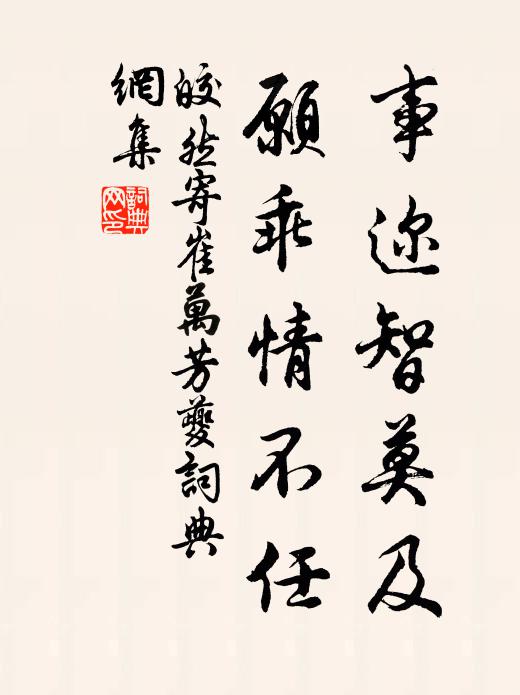 事迩智莫及
願乖情不任
皎然寄崔萬芳夔詞典
網集
詞典
网印